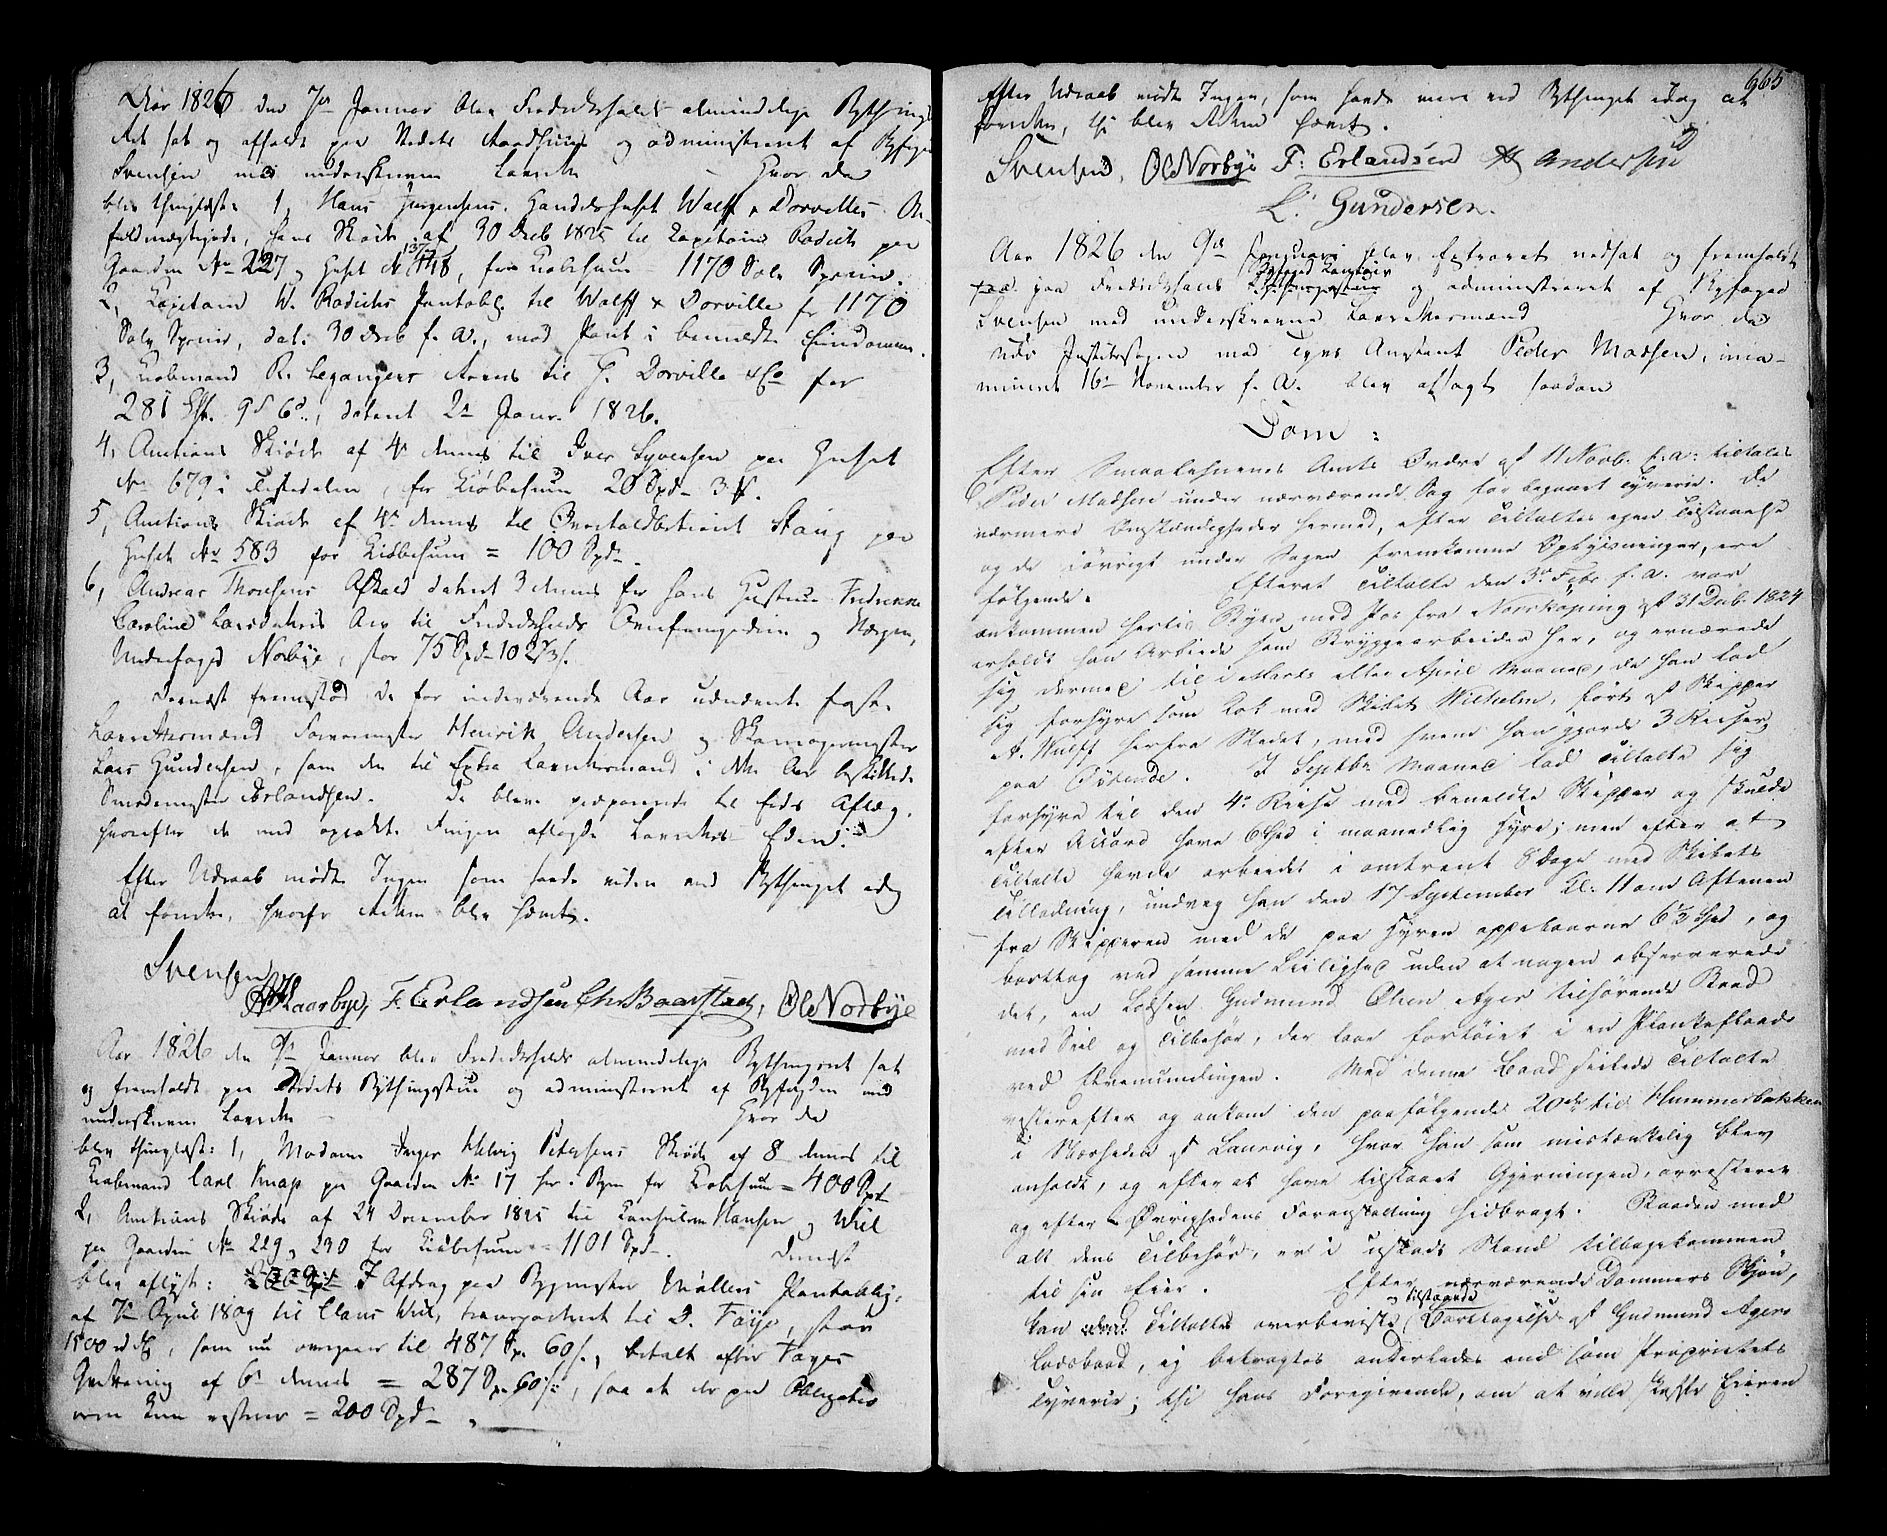 Aar 1826 den 7de Januar blev Fredrikshalds almindelige Bythings
Ret sat og afholdt paa Stedets Raadhuus og administreret af Byfoged
Svensen med underskrevne Laugrette Hvor da
blev thinglæst: 1, Hans Jørgensens, Handelshuset Wolff & Dorvilles
fuldmægtigede, hans Skiøde af 30 Decb 1825 til Capitain Radich paa
Gaarden No 227 og Huset No 148, for Kiøbesum 1170 Sølv Specier.
2, Capitain W. Radichs Pantobl. til Wolff & Dorville for 1170
Sølv Specier, dat. 30 Decb f. A., med Pant i bemeldte Eiendomme.
3, Kiøbmand R. Leganger til G. Dorville & Co for
281 Spd. 9 s 6 d., dateret 2de Janr. 1826.
4, Auctions Skiøde af 4de dennes til Iver Syversen paa Huset
No 679 i Tistedalen, for Kiøbesum 20 Spd 3 s.
5, Auctions Skiøde af 4de dennes til Overtoldbetient Stang paa
Huset No 583 for Kiøbesum = 100 Spd.
6, Andreas Thoresens Afkald dateret 3 dennes for hans Hustrue Fredrikke
Caroline Larsdatters Arv til Fredrikshalds Overformynderie og Værgen,
Underfoged Norbye, stor 75 Spd 102 s.
Dernæst fremstod de for indeværende Aar udnævnte faste
Laugrettesmænd Farvermester Henrik Andersen og Skomagermester
Lars Gundersen, som den til Extra Laugrettesmand i dette Aar beskikkede
Smedemester Erlandsen. De bleve præparerede til Eeds Aflæg.
hvorefter de med oprakte Fingre aflagde Laugrettes Eden.
Efter Udraab mødte Ingen som havde videre ved Bythinget idag
at foredra, hvorfor Retten blev hævet.
Svensen
Kaarbye, F. Erlandsen Chr Baarstad, Ol Norbye
Aar 1826 den 9de Januar blev Fredrikshalds almindelige Bythingsret sat
og fremholdt paa Stedets Bythingstue og administreret af Byfogden med
underskrevne Laugrette Hvor da
blev thinglæst: 1, Madame Inger Helvig Petersens Skiøde af 8de dennes til
Kiøbmand Carl Knap paa Gaarden No 17 her i Byen for Kiøbesum = 400 Spd
2, Auctions Skiøde af 24 December 1825 til Consulerne Hansen og Wiel
paa Gaarden No 229 og 230 for Kiøbesum = 1101 Spd. Dernæst
blev aflyst: I Afdrag paa Bygmester Møllers Pantoblig:
af 7de April 1809 til Claus Wiel, transporteret til D. Faye, stor
1500 rd, som nu overgaaer til 487 Sp 60 s., betalt efter Fayes
Qvittering af 6te dennes = 287 Sp 60 s., saa at der paa Obligatio
nen kun restere = 200 Spd
665
Efter Udraab mødte Ingen, som havde mere ved Bythinget idag at
foredra, thi blev Retten hævet.
Svensen, Ol Norbye F: Erlandsen H Andersen
L. Gundersen.
Aar 1826 den 9de Januari blev Extraret nedsat og fremholdt
paa Fredrikshalds Byfoged Contoir og administreret af Byfoged
Svensen med underskrevne Laugrettesmænd Hvor da
udi Justitssagen mod Tyvs Arrestant Peder Madsen, incamineret
16de November f. A. blev afsagt saadan
Dom:
Efter Smaalehnenes Amts Ordre af 11 Novb. f. a: tiltales
Peder Madsen under nærværende Sag for begaaet Tyverie. De
nærmere Omstændigheder hermed, efter Tiltaltes egen Tilstaaelse
og de iøvrigt under Sagen fremkomne Oplysninger, ere
følgende. Efterat Tiltalte den 3de Febr f. a. var
ankommen hertil Byen med Pas fra Norrkøping af 31 Decb. 1824
erholdt han Arbeide som Bryggearbeider her, og ernærede
sig dermed til i Marts eller April Maaned, da han lod
sig forhyre som Kok med Skibet Wilhelm, ført af Skipper
A. Wulff herfra Stedet, med hvem han gjorde 3 Reiser
paa Ostende. I Septbr Maaned lod Tiltalte sig
forhyre til den 4de Reise med bemeldte Skipper og skulde
efter Accord have 6 Spd i maanedlig Hyre; men efter at
Tiltalte havde arbeidet i omtrent 8 Dage med Skibets
Tilladning, undveg han den 17 September Kl: 11 om Aftenen
fra Skipperen med de paa Hyren oppebaarne 6½ Spd, og
borttog ved samme Leilighed uden at nogen observerede
det, en Lodsen Gudmund Olsen Ager tilhørende Baad
med Seil og Tilbehør, der laae fortøiet i en Plankeflaade
ved Elvemundingen. Med denne Baad seilede Tiltalte
vesterefter og ankom den paafølgende 20de til Hummerbakken
i Nærheden af Laurvig, hvor han som mistænkelig blev
anholdt, og efter at have tilstaaet Gjerningen, arresteret
og efter Øvrighedens Foranstaltning hidbragt. Baaden med
alt dens Tilbehør, er i uskadt Stand tilbagekommen
til sin Eier. Efter nærværende Dommers Skjøn,
kan Tiltaltes overbeviste og tilstaaede Borttagelse af Gudmund Agers
Lodsbaad, ej betragtes anderledes end som Proprietets
Tyverie; thi hans Foregivende, om at ville skaffe Eieren